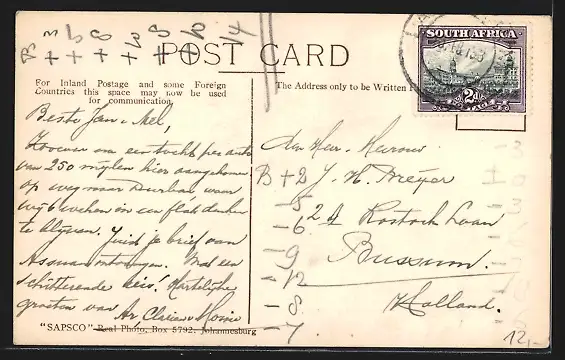 B 3 6 8 6 8 6 14
+ + + + +
POST CARD
SOUTH AFRICA
2d
For Inland Postage and some Foreign
Countries this space may now be used
for communication.
The Address only to be Written
Beste Jan & Nel,
na een tocht per auto
van 250 mijlen hier aangekomen
op weg naar Durban waar
wij 6 weken in een flat denken
te blijven. Juist je brief van
ontvangen. Met een
schitterende reis. Hartelijke
groeten van
den Heer & Mevrouw
B + 2 J. H. Meyer
- 5
- 6 24 Rostock Laan
- 9 Bussum.
- 12
- 8 Holland.
- 7
"SAPSCO" Real Photo, Box 5792, Johannesburg
12,-